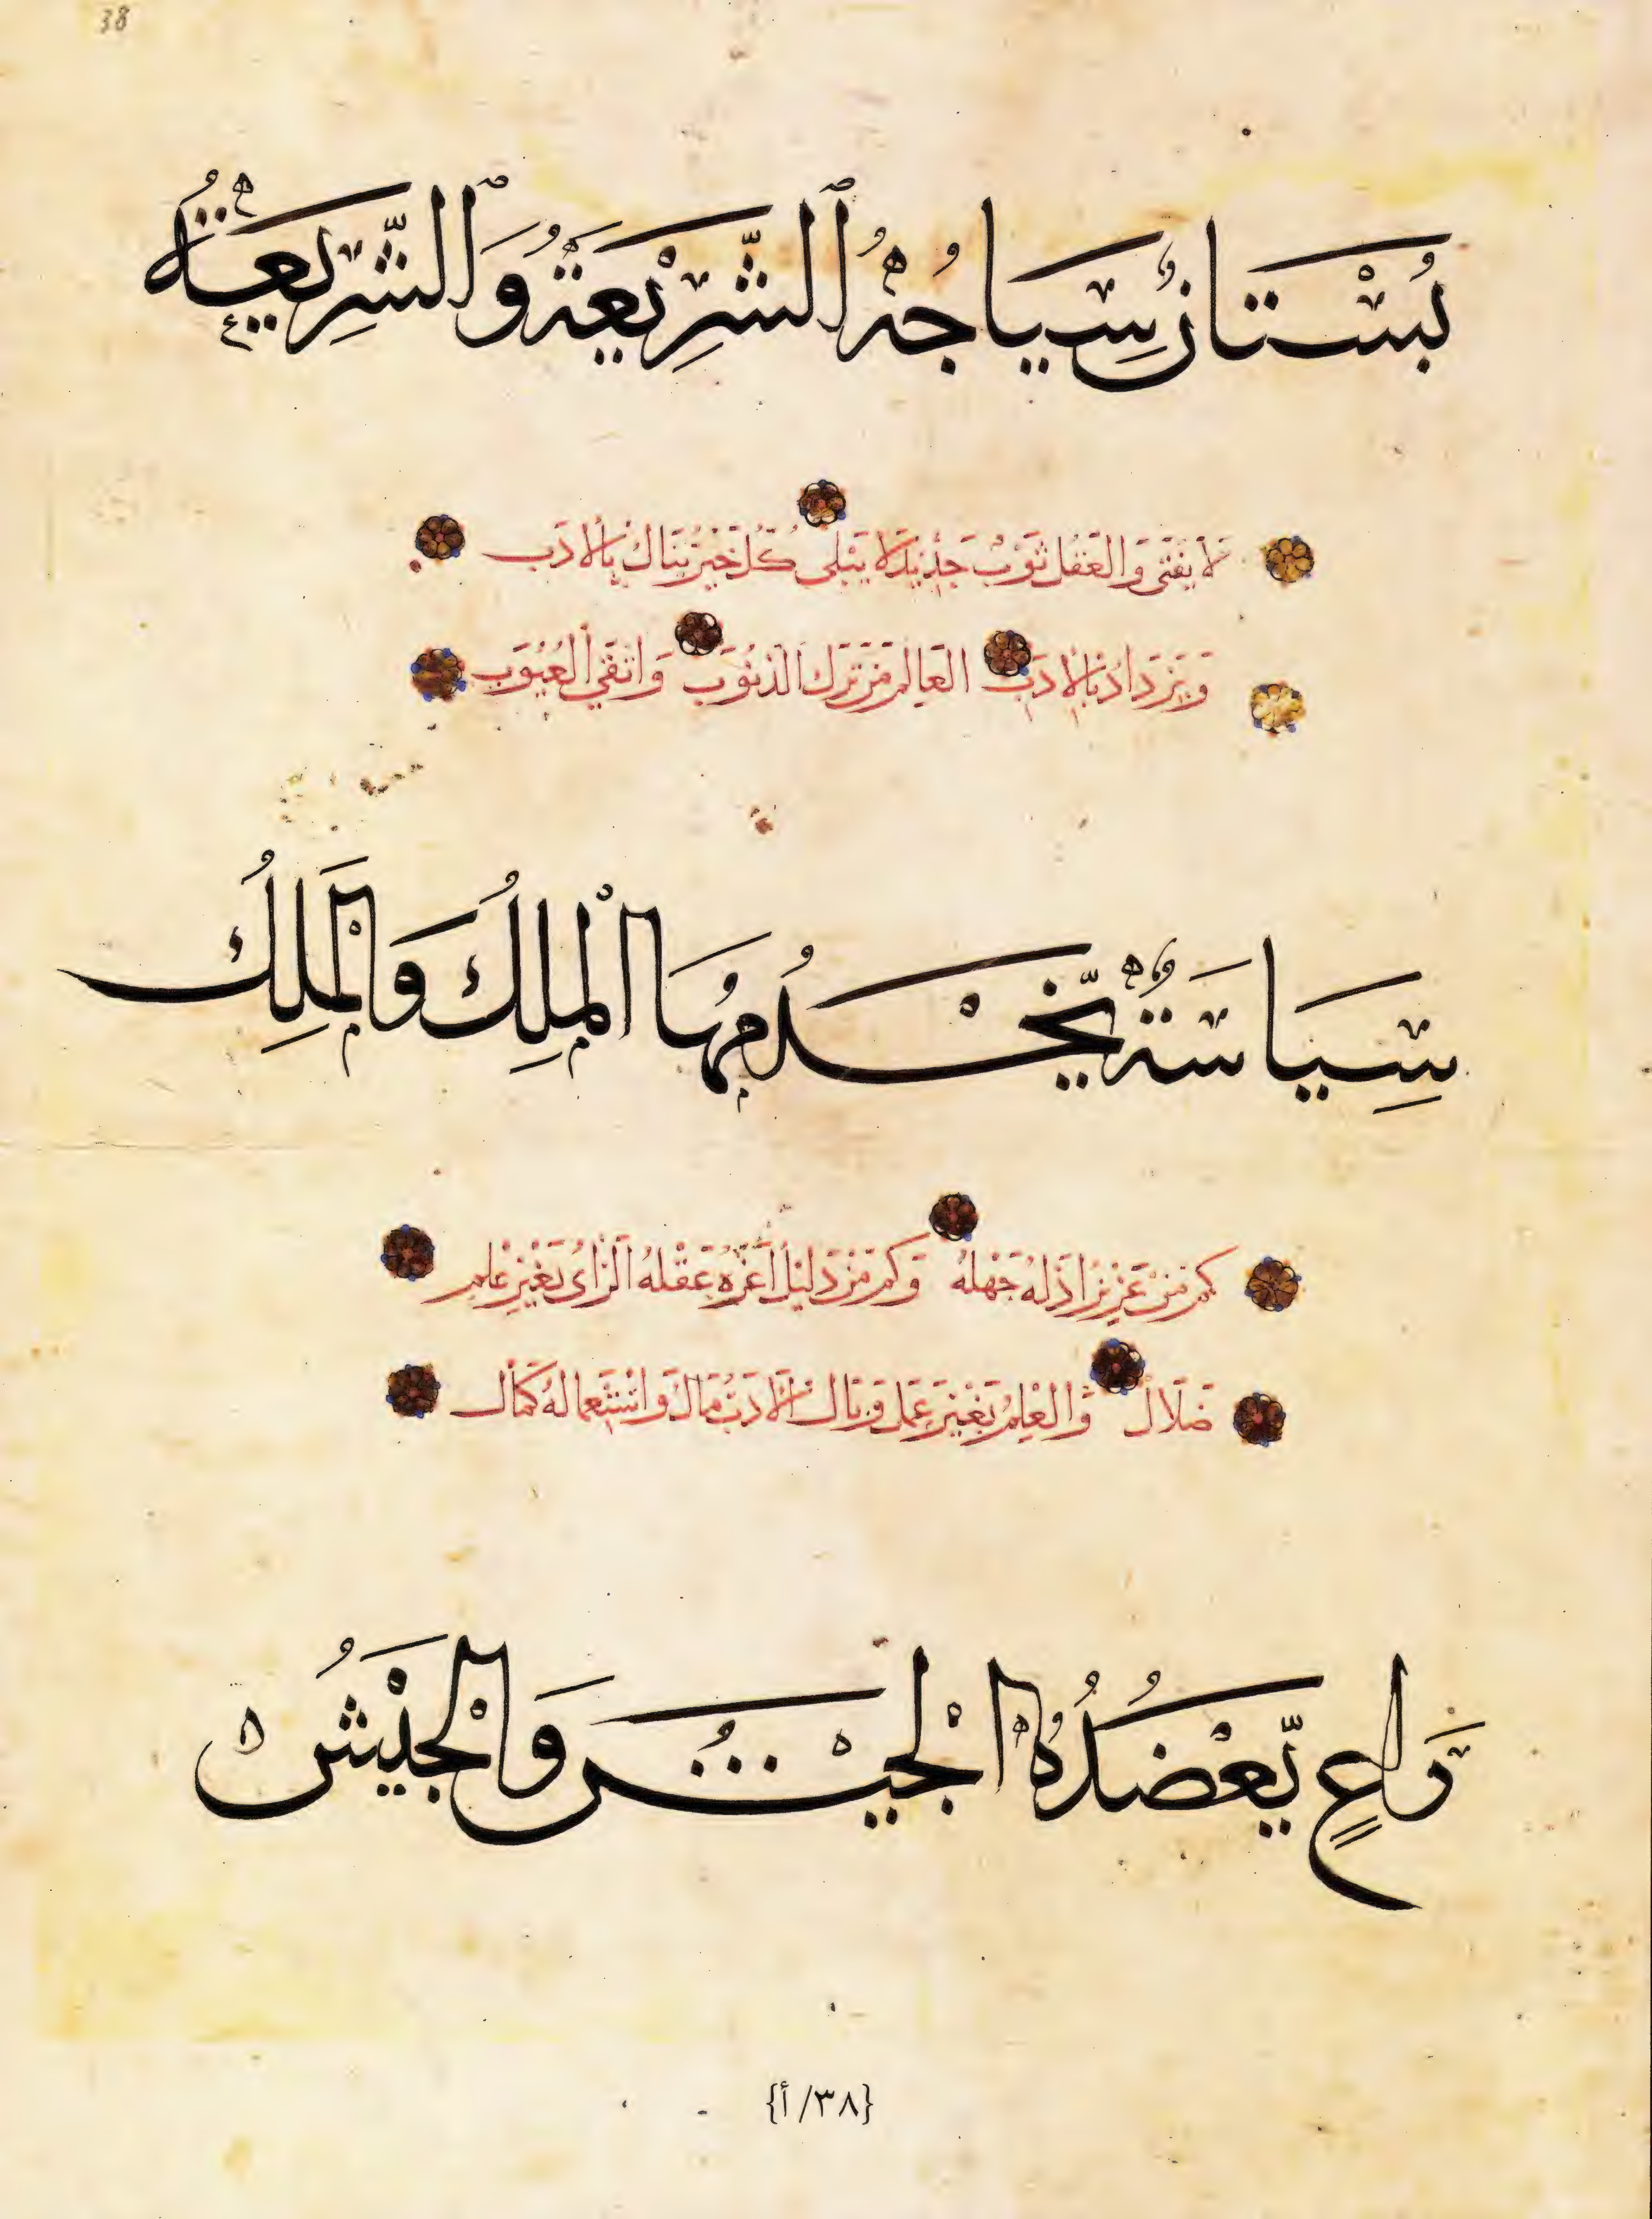 38
بُسْتَانٌ سِيَاجُهُ ٱلشَّرِيْعَةُ وَٱلشَّرِيعَةُ
لَا يَفْنَى وَالعَقْلُ ثَوْبٌ جَدِيْدٌ لَا يَبْلَى كُلُّ خَيْرٍ يُنَالُ بِالْأَدَبِ
وَيَزْدَادُ بِالْأَدَبِ العَالِمُ مَنْ تَرَكَ الذُنُوْبَ وَاتَّقَى العُيُوْبَ
سِيَاسَةٌ يَّخْدُمُهَا الْمَلِكُ وَالْمَلِكُ
كَمْ مِنْ عَزِيْزٍ اَذَلَّهُ جَهْلُهُ وَكَمْ مِنْ ذَلِيْلٍ اَعَزَّهُ عَقْلُهُ اَلرَّاىُ بِغَيْرِ عِلْمٍ
ضَلَالٌ وَالعِلْمُ بِغَيْرِ عَمَلٍ وَبَالٌ اَلْاَدَبُ مَالٌ وَاسْتِعْمَالُهُ كَمَالٌ
رَاعٍ يَّعْضُدُهُ الْجَيْشُ وَالْجَيْشُ
{٣٨/أ}